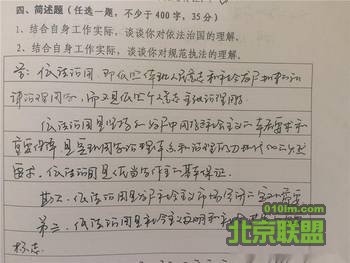 四、简述题（任选一题，不少于 400 字，35 分）
1、结合自身工作实际，谈谈你对依法治国的理解。
2、结合自身工作实际，谈谈你对规范执法的理解。
答：依法治国即依照体现人民意志和社会发展规律的
法律治理国家，而不是依照个人意志
依法治国是坚持和发展中国特色社会主义的本质要求和
重要保障，是实现国家治理体系和治理能力现代化的必然
要求。依法治国是依法
其二、依法治国是发展社会主义市场经济的
第三、依法治国是社会主义文明和
标志
010lm.com
北京联盟